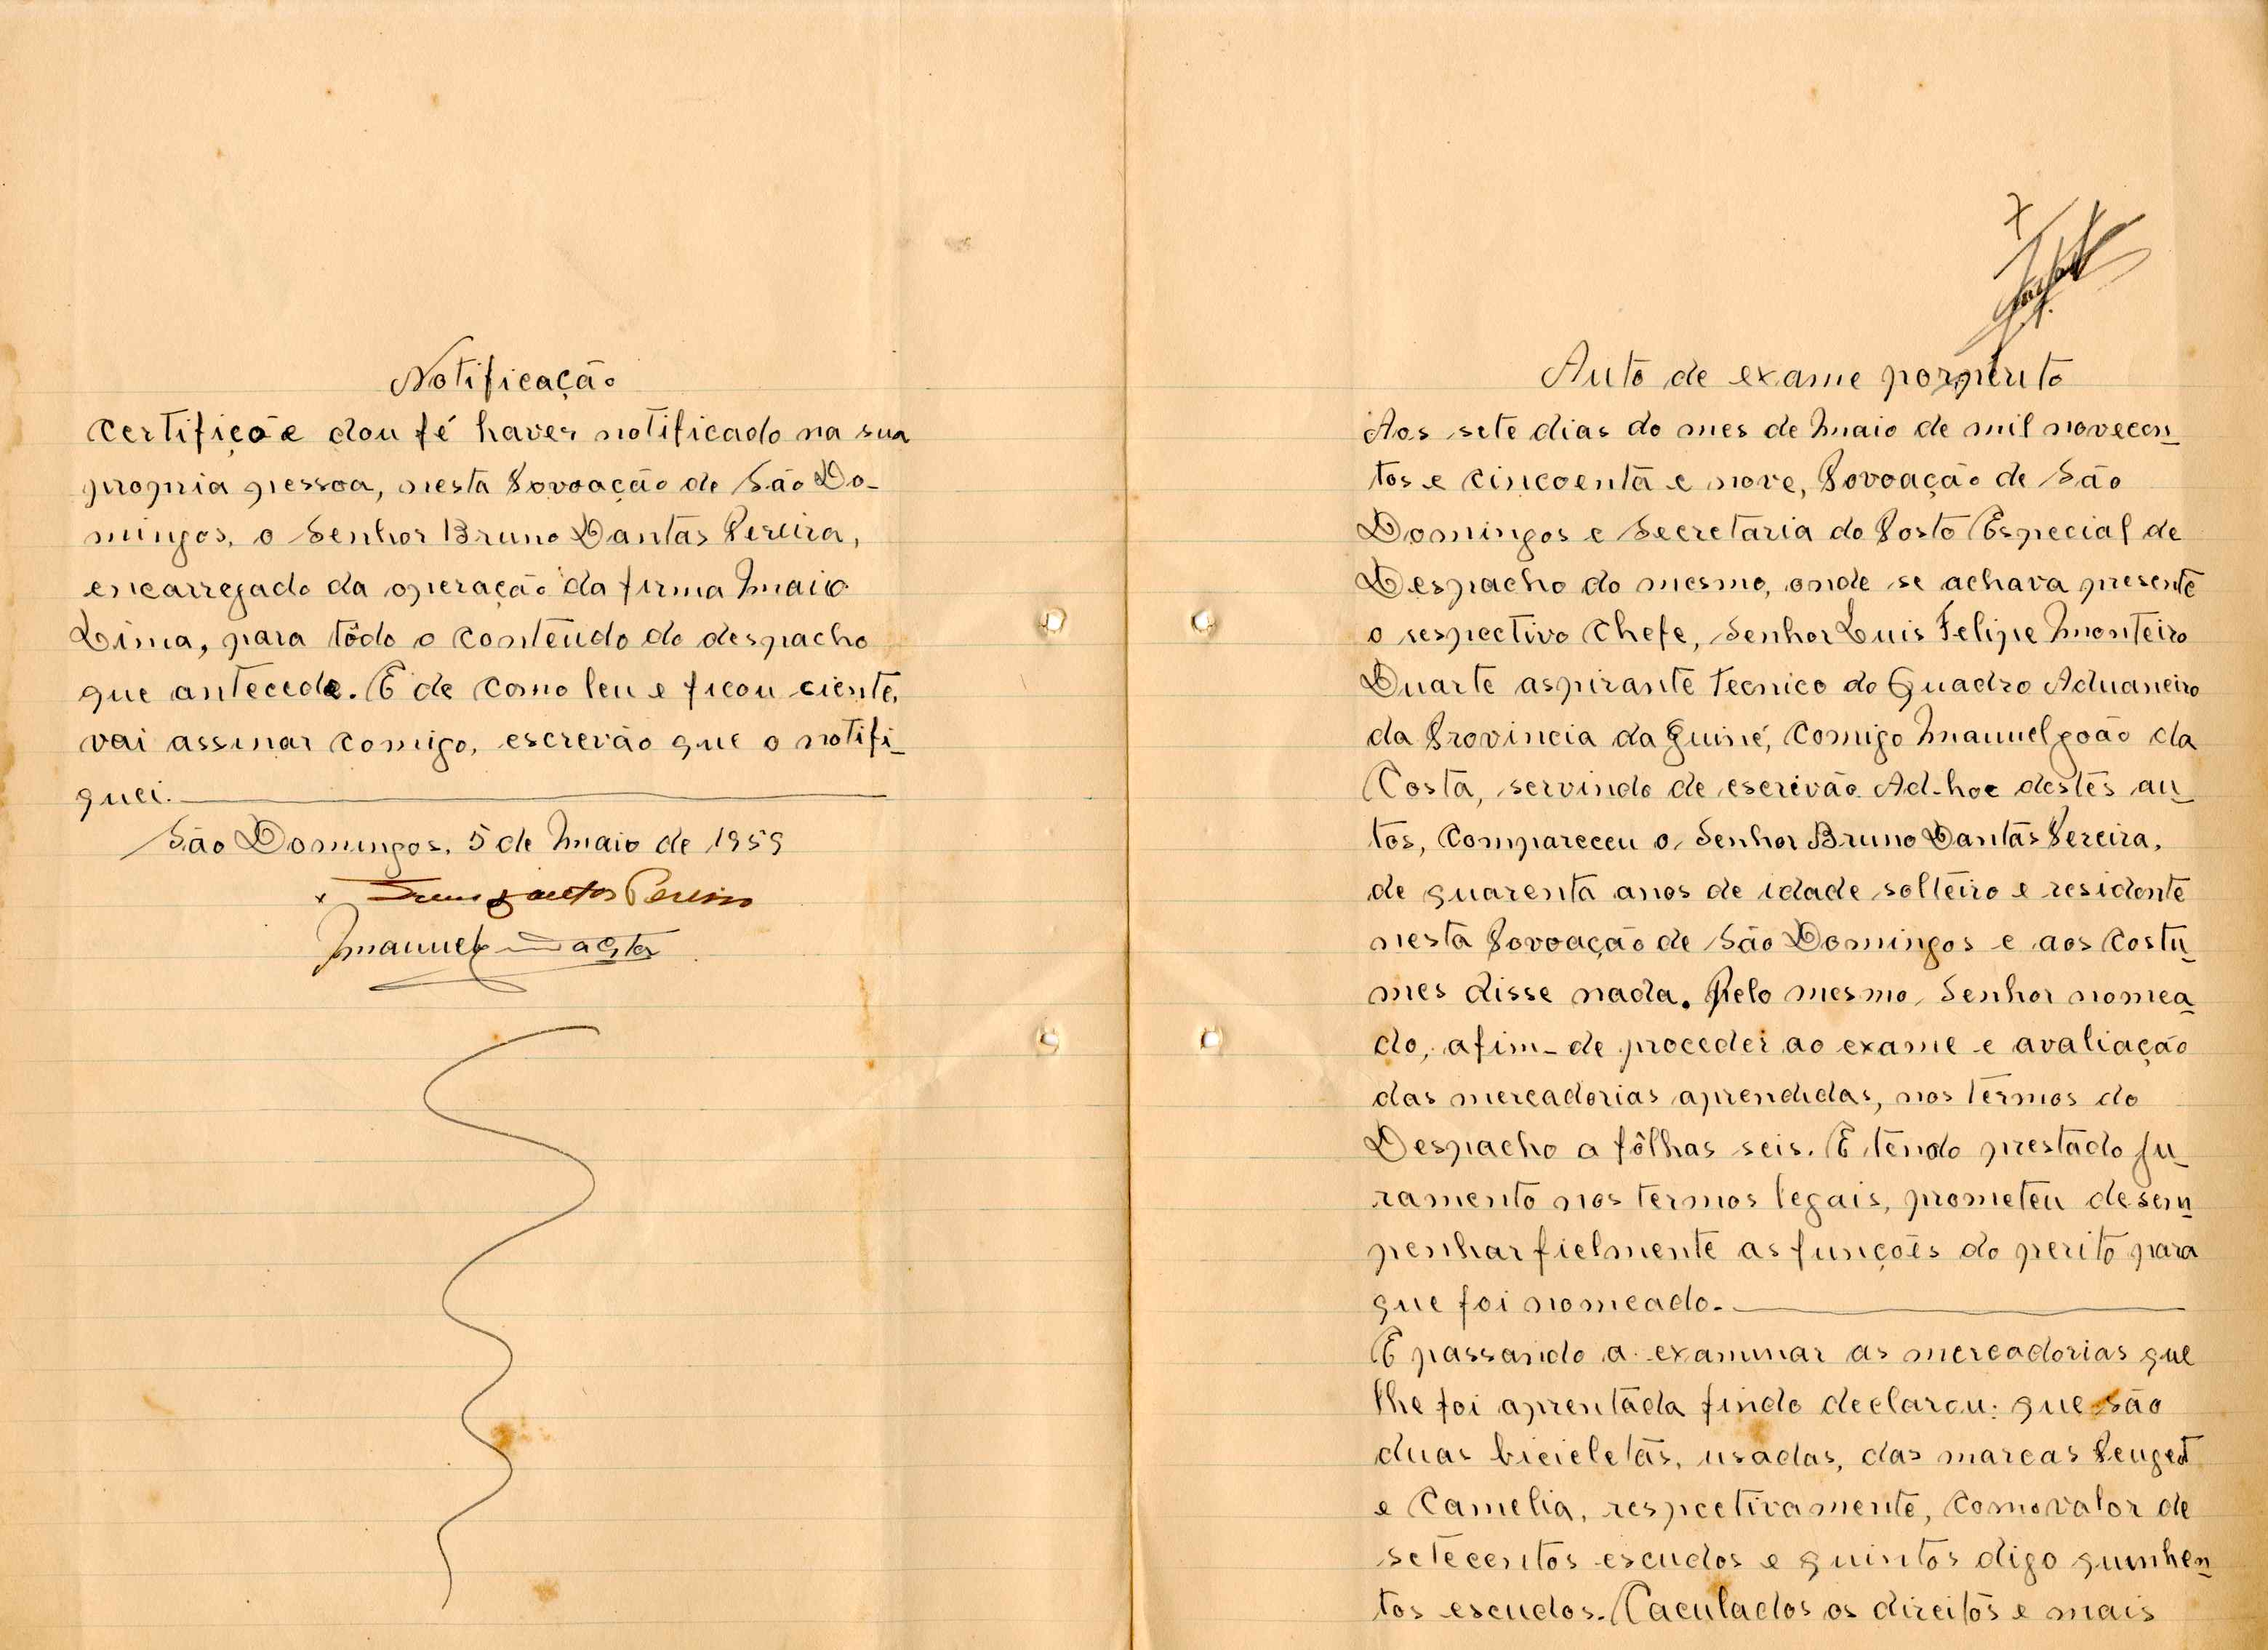 Notificação
Certifico e dou fé haver notificado na sua
propria pessoa, nesta Povoação de São Do-
mingos, o Senhor Bruno Dantas Pereira,
encarregado da operação da firma Maio
Lima, para tôdo o conteudo do despacho
que antecede. E de como leu e ficou ciente,
vai assinar comigo, escrevão que o notifi-
quei.
São Domingos, 5 de Maio de 1959
Bruno Dantas Pereira
Manuel da Costa
7
Auto de exame por perito
Aos sete dias do mes de Maio de mil novecen-
tos e cincoenta e nove, Povoação de São
Domingos e Secretaria do Posto Especial de
Despacho do mesmo, onde se achava presente
o respectivo Chefe, Senhor Luis Felipe Monteiro
Duarte aspirante tecnico do Quadro Aduaneiro
da Provincia da Guiné, comigo Manuel João da
Costa, servindo de escrivão Ad-hoc destes au-
tos, compareceu o Senhor Bruno Dantas Pereira,
de quarenta anos de idade solteiro e residente
nesta Povoação de São Domingos e aos costu-
mes disse nada. Pelo mesmo Senhor nomea-
do, afim-de proceder ao exame e avaliação
das mercadorias aprendidas, nos termos do
Despacho a fôlhas seis. E tendo prestado ju-
ramento nos termos legais, prometeu desem-
penhar fielmente as funções do perito para
que foi nomeado.
E passando a examinar as mercadorias que
lhe foi aprentada findo declarou: que são
duas bicicletas, usadas, das marcas Peuget
e Camelia, respectivamente, como valor de
setecentos escudos e quintos digo quinhen-
tos escudos. Caculados os direitos e mais